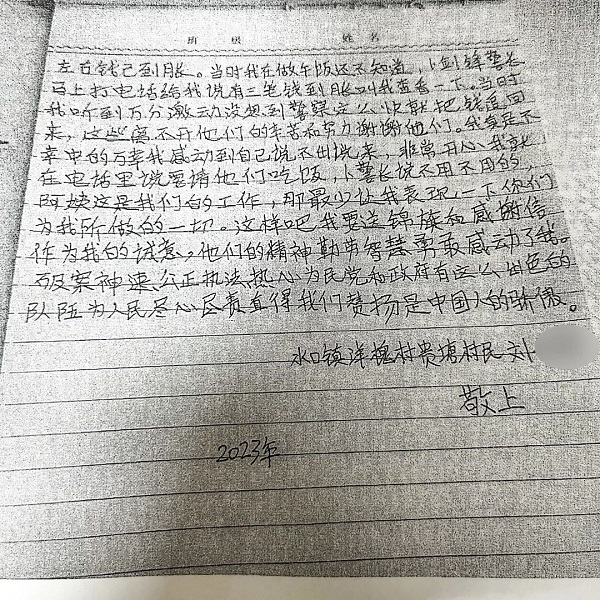 班 级 姓 名
左右钱已到账。当时我在做午饭还不知道，卜剑锋警长
马上打电话给我说有三笔钱到账叫我查看一下。当时
我听到万分激动没想到警察这么快就把钱追回
来，这些离不开他们的辛苦和努力谢谢他们。我真是不
幸中的万幸我感动到自己说不出说来，非常开心我就
在电话里说要请他们吃饭，卜警长说不用不用的，
阿姨这是我们的工作，那最少让我表现一下你们
为我所做的一切。这样吧我要送锦旗和感谢信
作为我的诚意，他们的精神勤劳智慧勇敢感动了我。
破案神速公正执法热心为民党和政府有这么出色的
队伍为人民尽心尽责值得我们赞扬是中国人的骄傲。
水口镇洋槐村贵塘村民刘
敬上
2023年